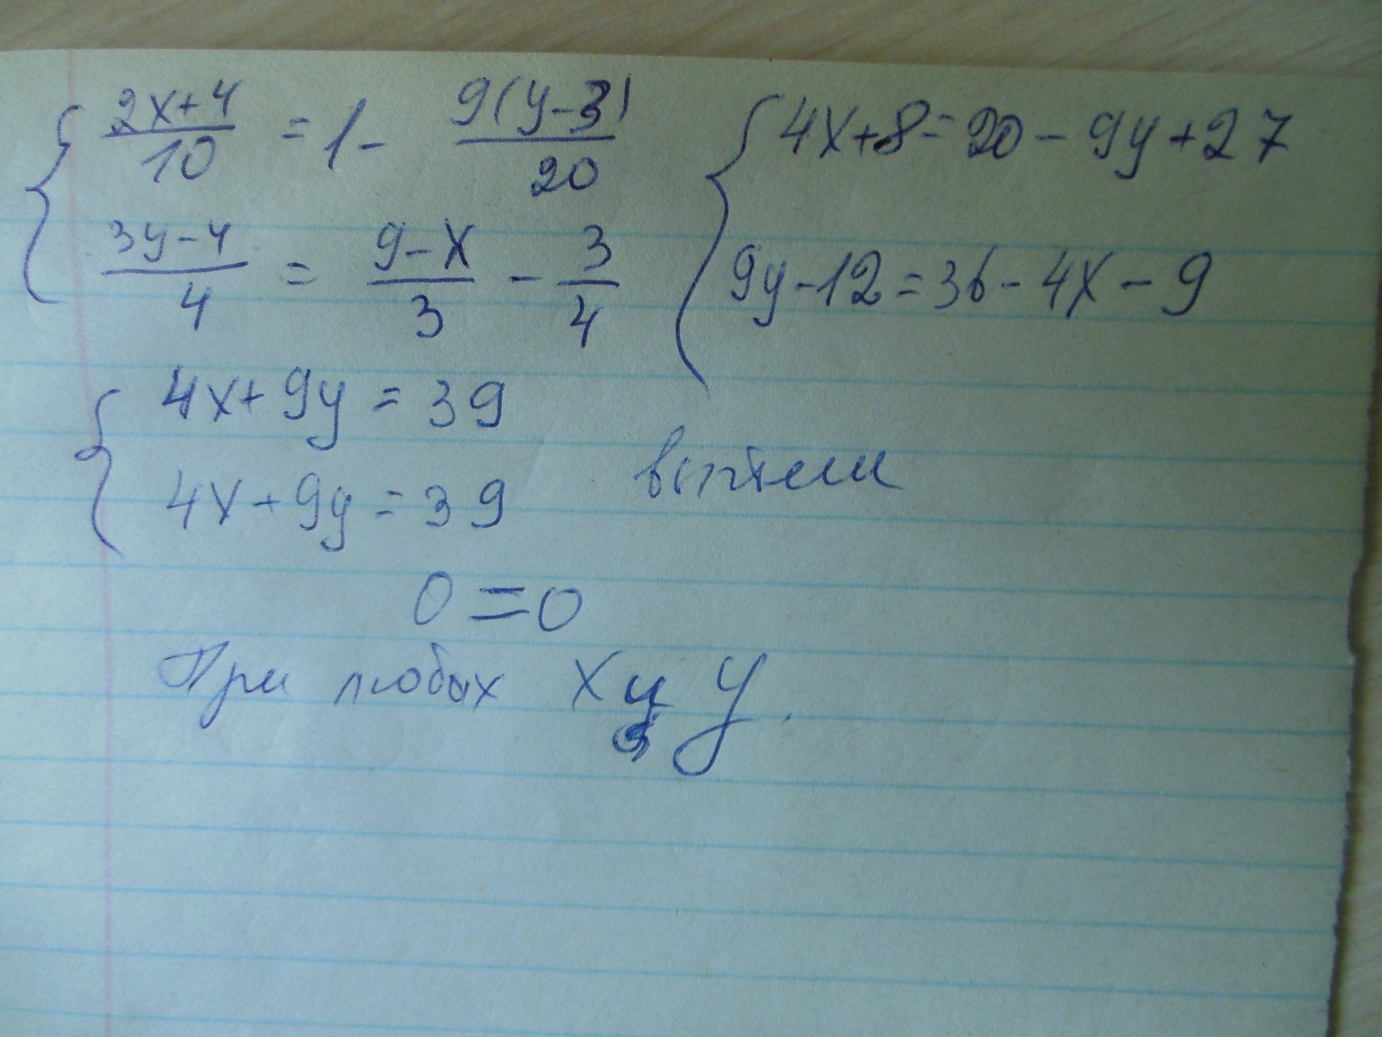 { (2x+4)/10 = 1 - 9(y-3)/20
(3y-4)/4 = (9-x)/3 - 3/4
{ 4x+8=20-9y+27
9y-12=36-4x-9
{ 4x+9y=39
4x+9y=39 вычтем
0=0
При любых x и y.